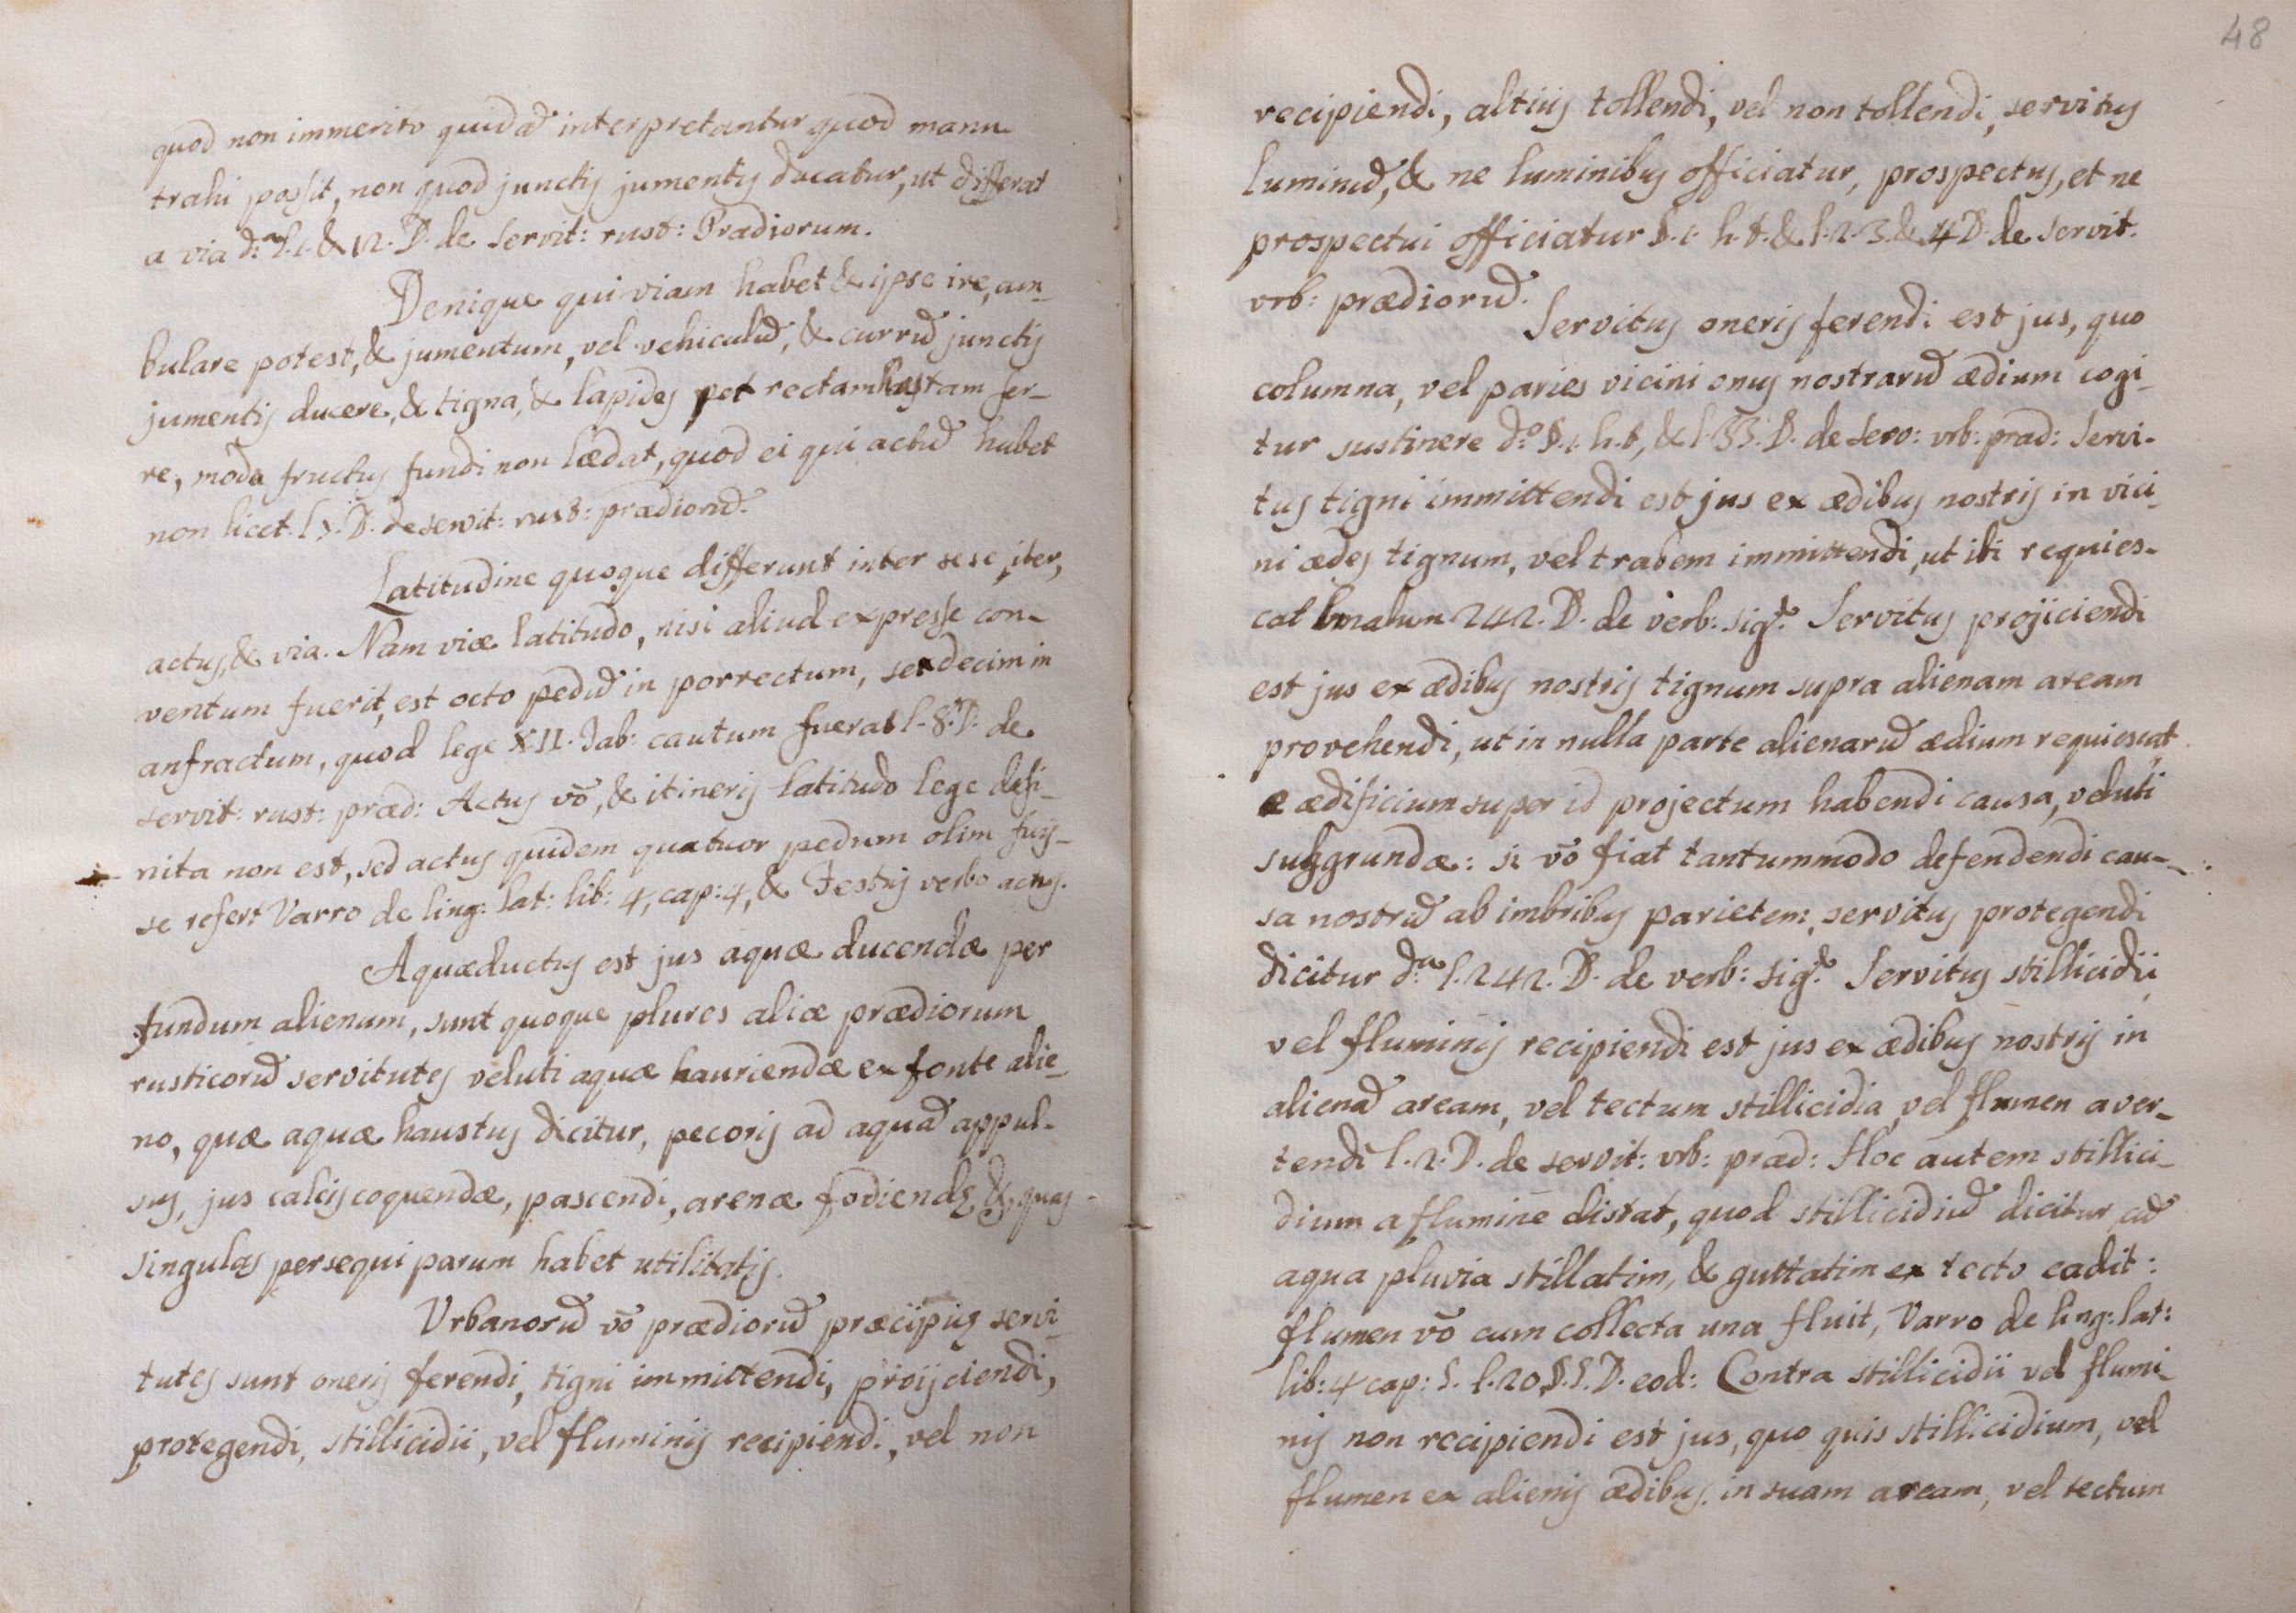 quod non immerito quidã interpretantur quod manu
trahi possit, non quod junctis jumentis ducatur, ut differat
a via d.ª l. 1. & 12. D. de servit: rust: Prædiorum.
Denique qui viam habet & ipse ire, am-
bulare potest, & jumentum, vel vehiculũ, & currũ junctis
jumentis ducere, & tigna, & lapides pet rectam hastam fer-
re, modo fructus fundi non lædat, quod ei qui actũ habet
non licet. l 7. D. de servit: rust: prædiorũ.
Latitudine quoque differunt inter sese, iter,
actus, & via. Nam viæ latitudo, nisi aliud expresse con-
ventum fuerit, est octo pedũ in porrectum, sexdecim in
anfractum, quod lege XII. Tab: cautum fuerat l. 8. D. de
servit: rust: præd: Actus võ, & itineris latitudo lege defi-
nita non est, sed actus quidem quatuor pedum olim fuis-
se refert Varro de ling: lat: lib: 4, cap: 4, & Festus verbo actus.
Aquæductus est jus aquæ ducendæ per
fundum alienum, sunt quoque plures aliæ prædiorum
rusticorũ servitutes veluti aquæ hauriendæ ex fonte alie-
no, quæ aquæ haustus dicitur, pecoris ad aquã appul-
sus, jus calcis coquendæ, pascendi, arenæ fodiendę &, quas
singulas persequi parum habet utilitatis.
Vrbanorũ võ prædiorũ præcipuę servi-
tutes sunt oneris ferendi, tigni immittendi, proijciendi,
protegendi, stillicidii, vel fluminis recipiendi, vel non
48
recipiendi, altius tollendi, vel non tollendi, servitus
luminũ, & ne luminibus officiatur, prospectus, et ne
prospectui officiatur §. 1. h. t. & l. 2. 3. & 4 D. de servit.
vrb: prædiorũ.
Servitus oneris ferendi est jus, quo
columna, vel paries vicini onus nostrarũ ædium cogi-
tur sustinere d.º §. 1. h. t, & l. 33. D. de serv: vrb: præd: Servi-
tus tigni immittendi est jus ex ædibus nostris in vici-
ni ædes tignum, vel trabem immittendi, ut ibi requies-
cat l. malum 242. D. de verb: sig.e Servitus projiciendi
est jus ex ædibus nostris tignum supra alienam aream
provehendi, ut in nulla parte alienarũ ædium requiescat
æ ædificium super id projectum habendi causa, veluti
suggrundæ: si võ fiat tantummodo defendendi cau-
sa nostrũ ab imbribus parietem, servitus protegendi
dicitur d.ª l. 242. D. de verb: sig.e Servitus stillicidii
vel fluminis recipiendi est jus ex ædibus nostris in
alienã aream, vel tectum stillicidia vel flumen aver-
tendi l. 2. D. de servit: vrb: præd: Hoc autem stillici-
dium a flumine distat, quod stillicidiũ dicitur cũ
aqua pluvia stillatim, & guttatim ex tecto cadit:
flumen võ cum collecta una fluit, Varro de ling: lat:
lib: 4 cap: 5. l. 20. §. 5. D. eod: Contra stillicidii vel flumi-
nis non recipiendi est jus, quo quis stillicidium, vel
flumen ex alienis ædibus in suam aream, vel tectum